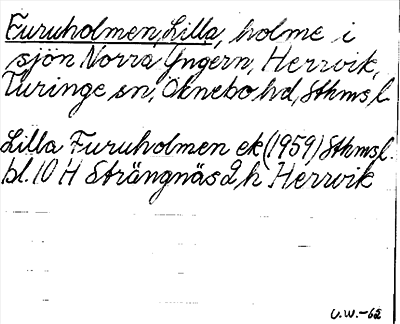 Furuholmen, Lilla, holme i
sjön Norra Yngern, Herrvik,
Turinge sn, Öknebo hd, Sthmsl.
Lilla Furuholmen ek (1959) Sthmsl.
bl. 10 H Strängnäs 2 h Herrvik
U.W.-62